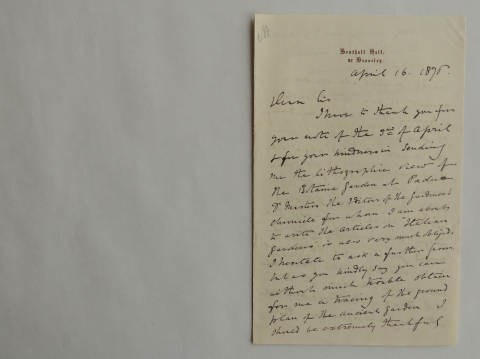 Benthall Hall.
nr Broseley.
April 16. 1876.
Dear Sir
I have to thank you for
your note of the 3rd of April
& for your kindness in sending
me the lithographic view of
the Botanic Garden at Padua
Dr Masters the Editor of the Gardeners
Chronicle for whom I am about
to write the articles on "Italian
Gardens" is also very much obliged.
I hesitate to ask a further favour
but as you kindly say you can
without much trouble obtain
for me a tracing of the ground
plan of the ancient garden I
should be extremely thankful